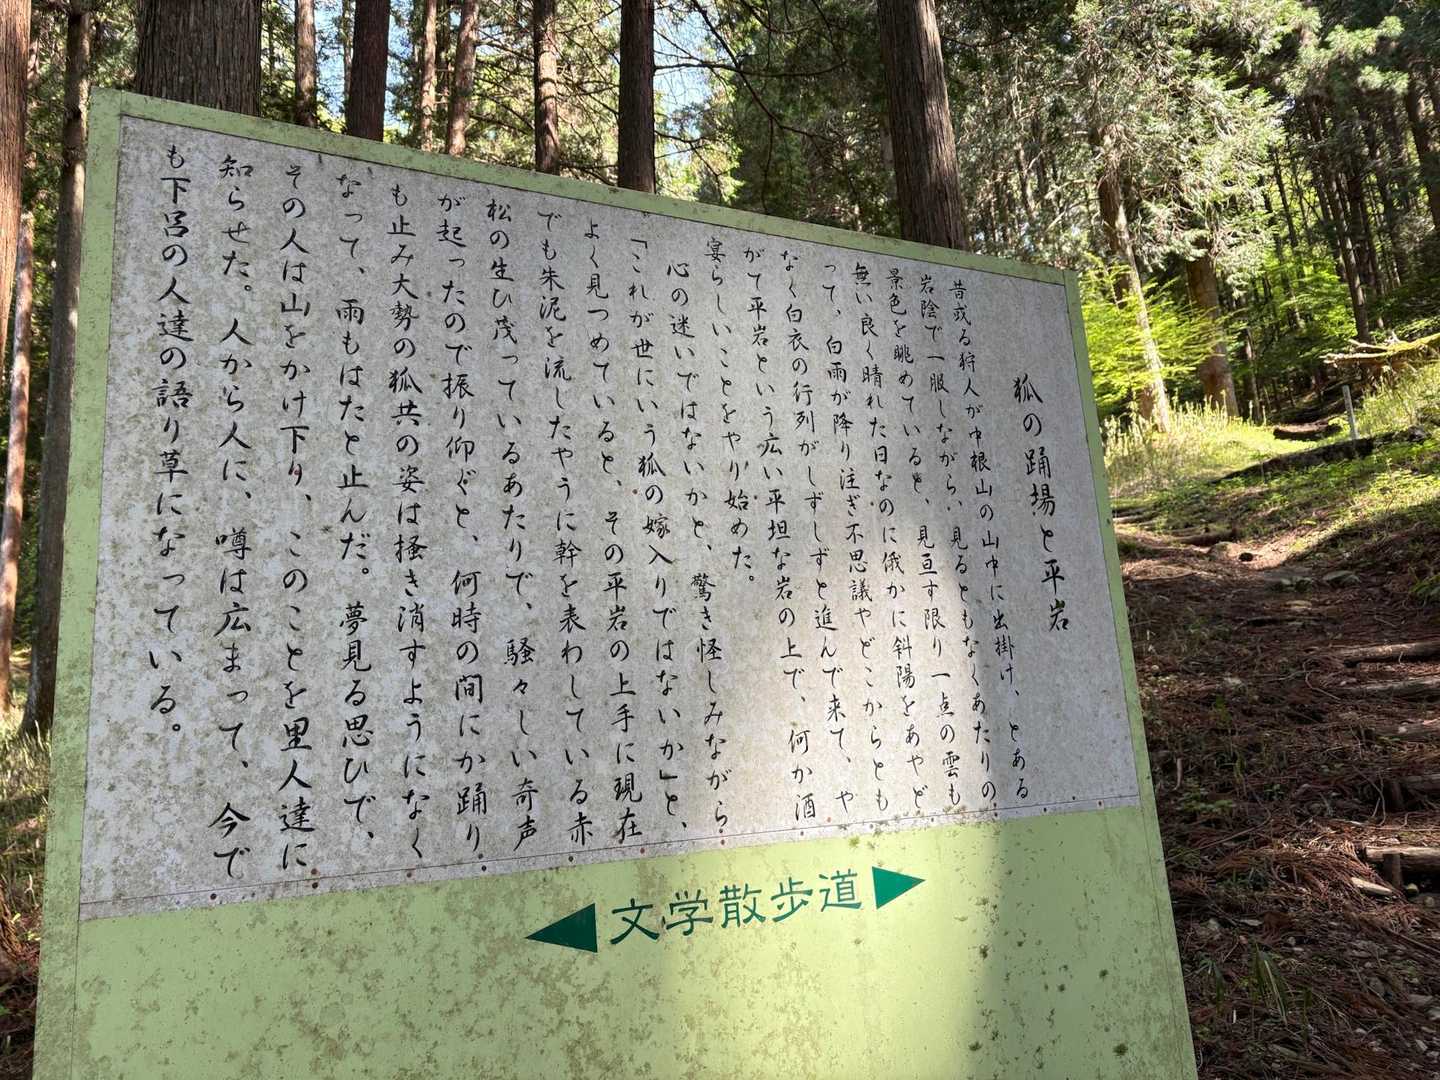 狐の踊場と平岩
昔或る狩人が中根山の山中に出掛け、とある
岩陰で一服しながら、見るともなくあたりの
景色を眺めていると、見亘す限り一点の雲も
無い良く晴れた日なのに俄かに斜陽をあやど
って、白雨が降り注ぎ不思議やどこからとも
なく白衣の行列がしずしずと進んで来て、や
がて平岩という広い平坦な岩の上で、何か酒
宴らしいことをやり始めた。
心の迷いではないかと、驚き怪しみながら
「これが世にいう狐の嫁入りではないか」と、
よく見つめていると、その平岩の上手に現在
でも朱泥を流したやうに幹を表わしている赤
松の生ひ茂っているあたりで、騒々しい奇声
が起ったので振り仰ぐと、何時の間にか踊り
も止み大勢の狐共の姿は掻き消すようになく
なって、雨もはたと止んだ。夢見る思ひで、
その人は山をかけ下り、このことを里人達に
知らせた。人から人に、噂は広まって、今で
も下呂の人達の語り草になっている。
◀文学散歩道▶